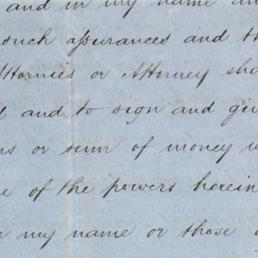 and in my name and
such assurances and th
Attornies or Attorney sha
and to sign and giv
ns or sum of money w
e of the powers herein
my name or those